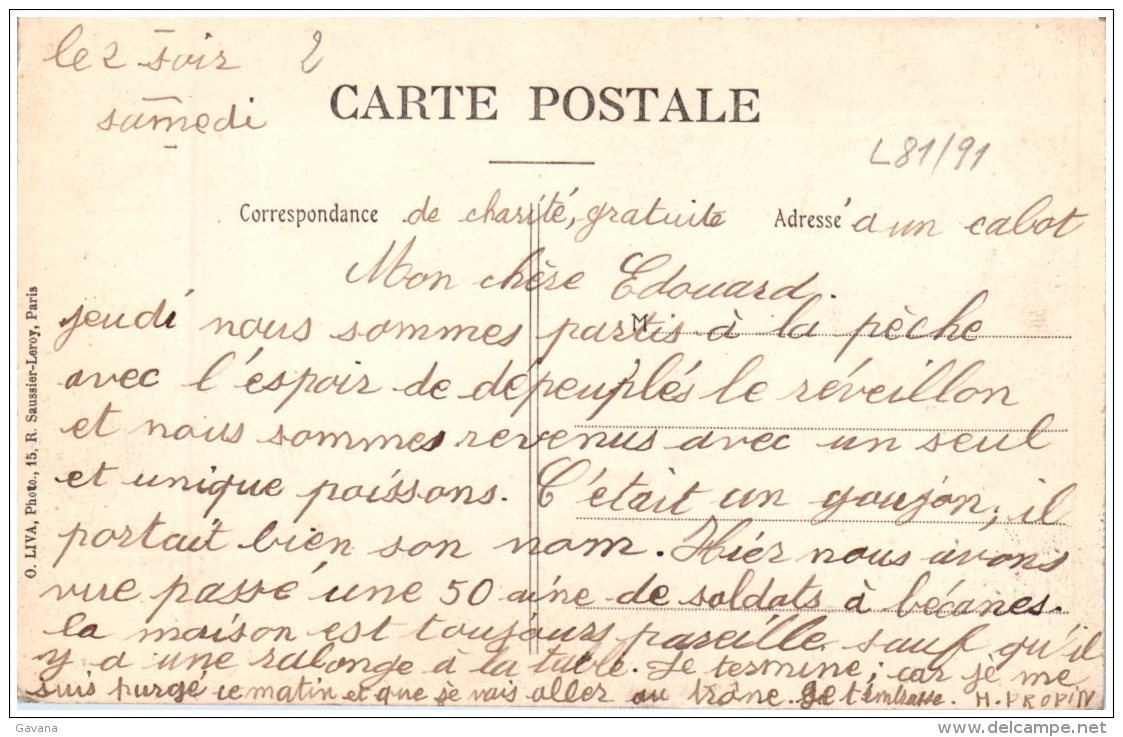 le 2 soir 2
samedi
CARTE POSTALE
L81/91
Correspondance de charité, gratuite Adresse à un cabot
Mon chère Edouard.
jeudi nous sommes partis à la pèche
avec l'espoir de dépeuplés le réveillon
et nous sommes revenus avec un seul
et unique poissons. C'était un goujon, il
portait bien son nom. Hier nous avons
vue passé une 50 aine de soldats à béanes.
La maison est toujours pareille sauf qu'il
y a une ralonge à la table. Je termine; car je me
suis purgé ce matin et que je vais aller au trône. Je t'embrasse. H. PROPIN
O. LIVA, Photo., 15, R. Saussier-Leroy, Paris
M
Gavana
www.delcampe.net